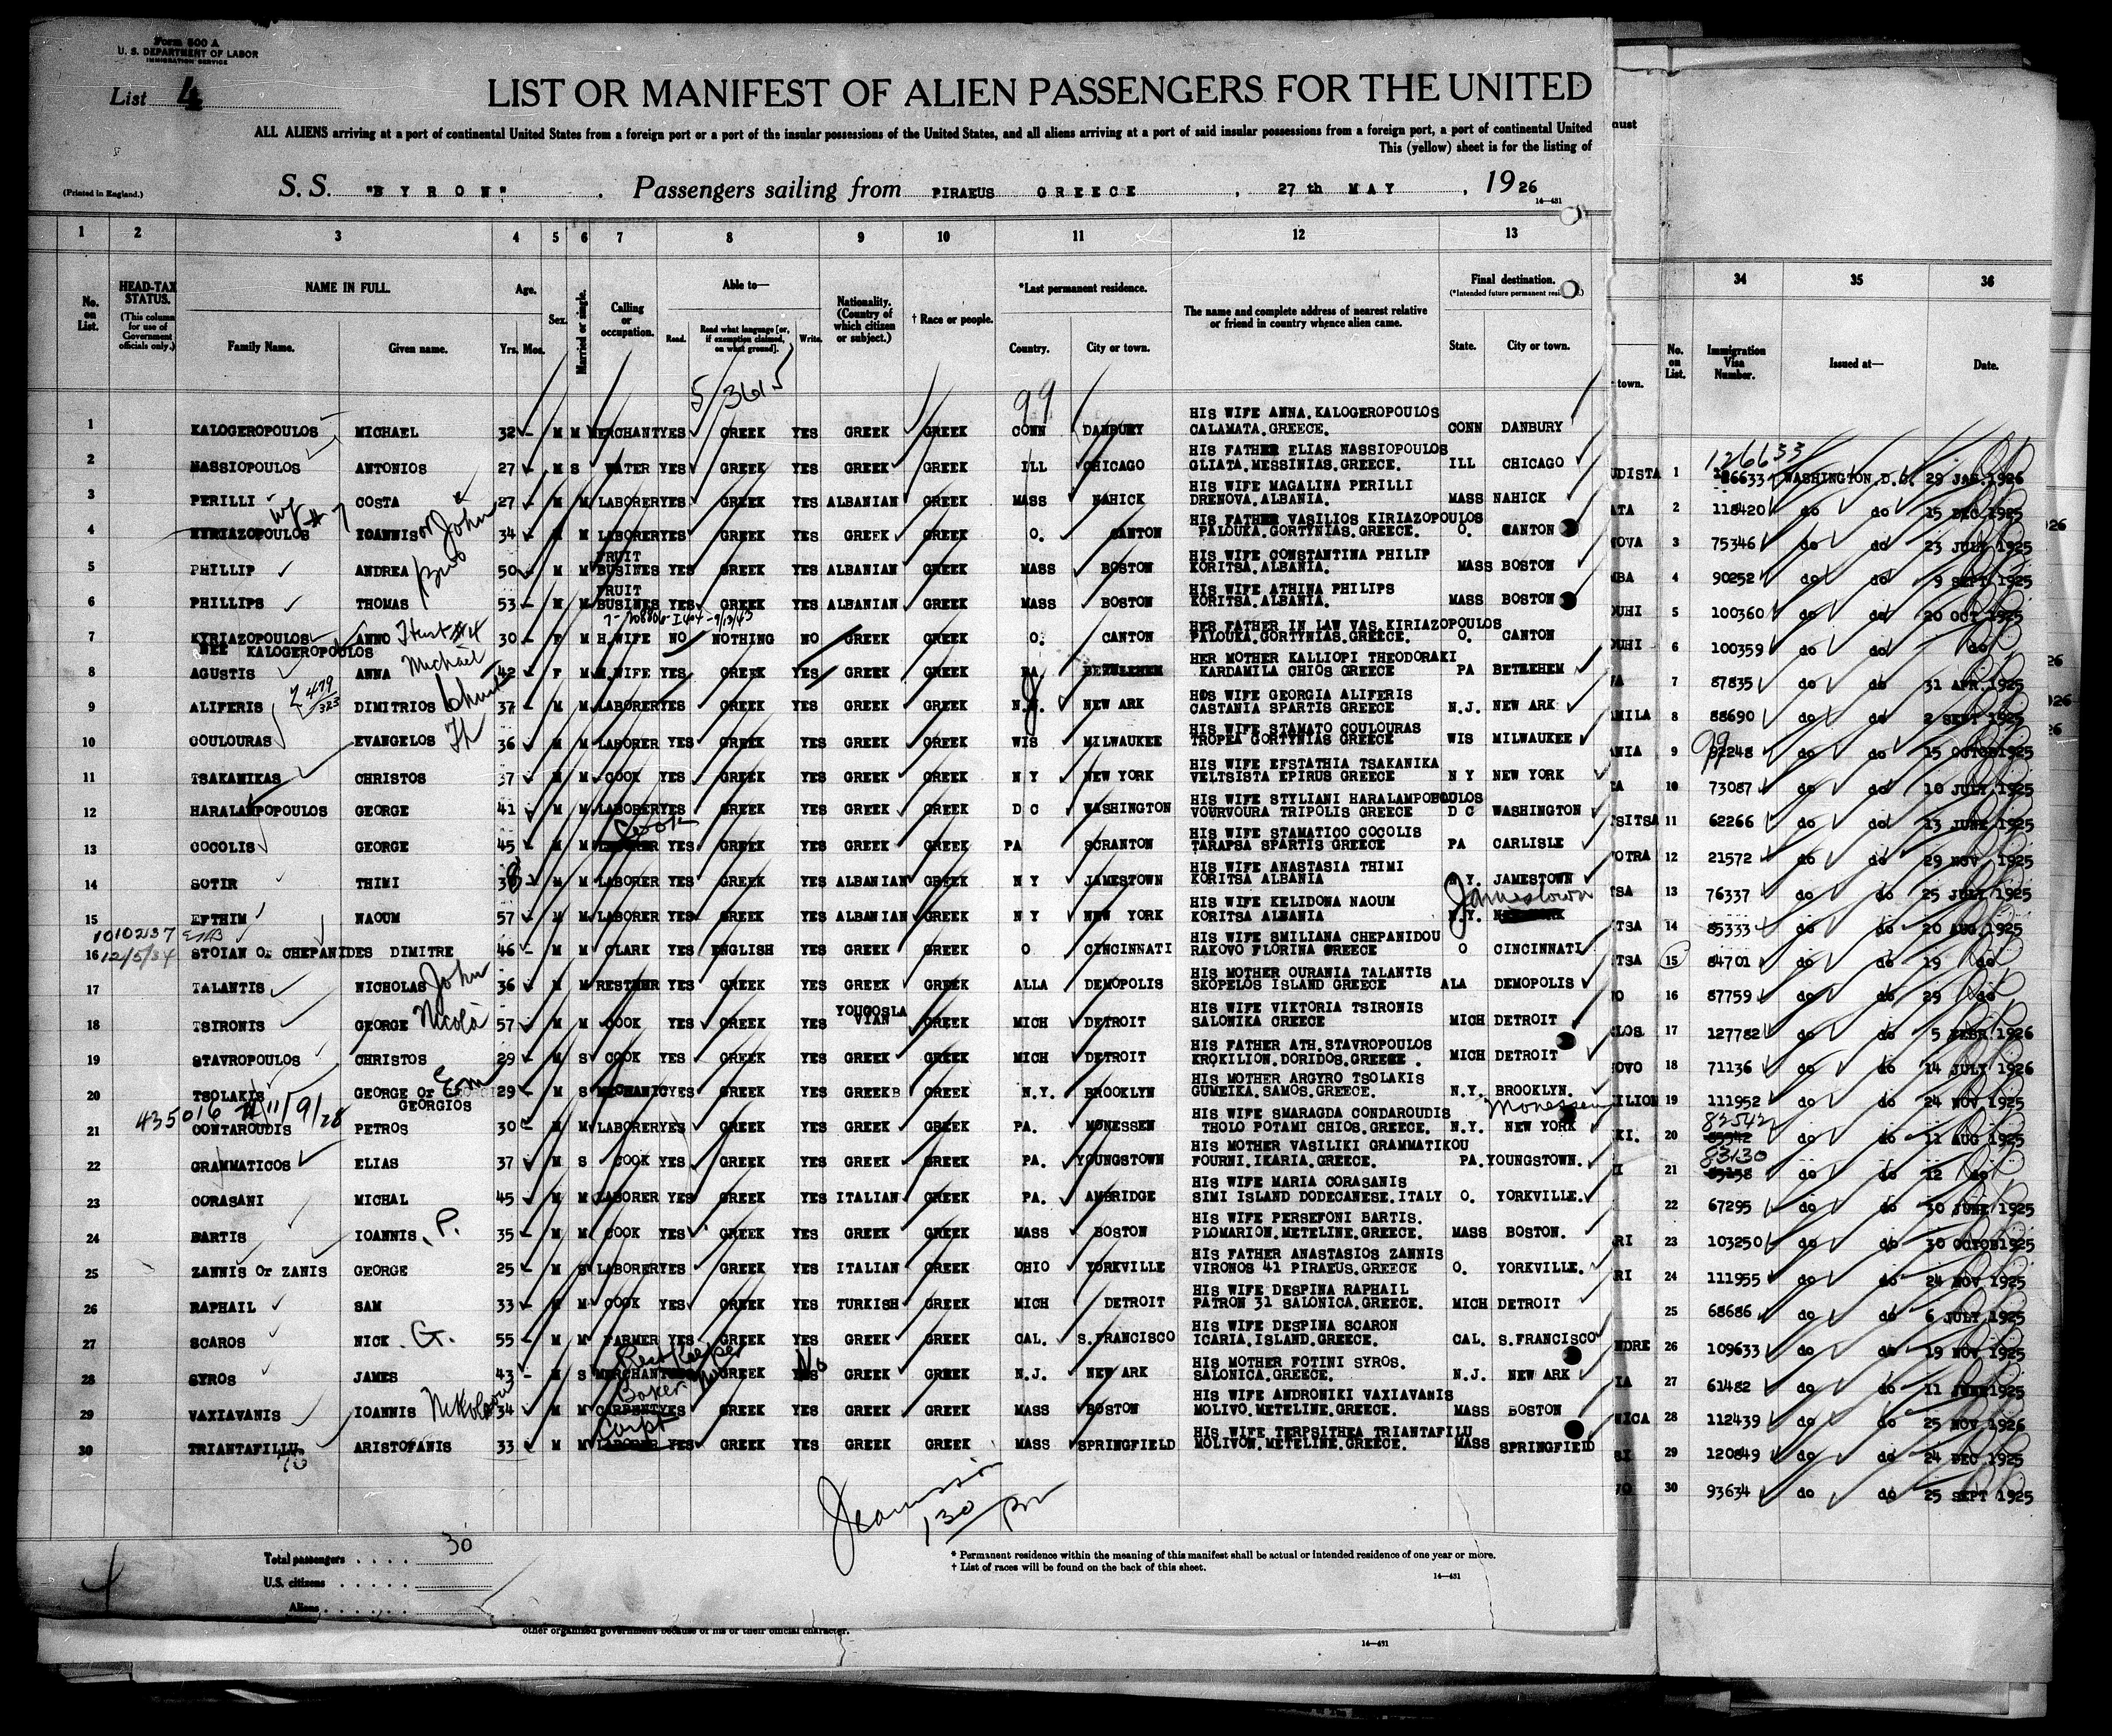 Form 500 A
U. S. DEPARTMENT OF LABOR
IMMIGRATION SERVICE
List 4
LIST OR MANIFEST OF ALIEN PASSENGERS FOR THE UNITED
ALL ALIENS arriving at a port of continental United States from a foreign port or a port of the insular possessions of the United States, and all aliens arriving at a port of said insular possessions from a foreign port, a port of continental United
This (yellow) sheet is for the listing of
(Printed in England.)
S. S. "BYRON". Passengers sailing from PIRAEUS GREECE, 27 th MAY, 1926
14—431
1 2 3 4 5 6 7 8 9 10 11 12 13
34 35 36
No. on List.
HEAD-TAX STATUS. (This column for use of Government officials only.)
NAME IN FULL.
Family Name. Given name.
Age. Yrs. Mos.
Sex.
Married or single.
Calling or occupation.
Able to—
Read. Read what language [or, if exemption claimed, on what ground]. Write.
Nationality. (Country of which citizen or subject.)
† Race or people.
*Last permanent residence.
Country. City or town.
The name and complete address of nearest relative or friend in country whence alien came.
Final destination.
(*Intended future permanent
State. City or town.
town.
No. on List. Immigration Visa Number. Issued at— Date.
5/3615
99
HIS WIFE ANNA. KALOGEROPOULOS
1 KALOGEROPOULOS MICHAEL 32 - M M MERCHANT YES GREEK YES GREEK GREEK CONN DANBURY CALAMATA. GREECE. CONN DANBURY
HIS FATHER ELIAS NASSIOPOULOS
2 NASSIOPOULOS ANTONIOS 27 M S WATER YES GREEK YES GREEK GREEK ILL CHICAGO GLIATA. MESSINIAS. GREECE. ILL CHICAGO
HIS WIFE MAGALINA PERILLI
3 PERILLI COSTA 27 M M LABORER YES GREEK YES ALBANIAN GREEK MASS NAHICK DRENOVA. ALBANIA. MASS NAHICK
wf #7
or John
HIS FATHER VASILIOS KIRIAZOPOULOS
4 KYRIAZOPOULOS YOANNIS 34 M M LABORER YES GREEK YES GREEK GREEK O. CANTON PALOUKA. GORTYNIAS. GREECE. O. CANTON
HIS WIFE CONSTANTINA PHILIP
5 PHILLIP ANDREA 50 M M FRUIT BUSINES YES GREEK YES ALBANIAN GREEK MASS BOSTON KORITSA. ALBANIA. MASS BOSTON
Bro
HIS WIFE ATHINA PHILIPS
6 PHILLIPS THOMAS 53 - M M FRUIT BUSINES YES GREEK YES ALBANIAN GREEK MASS BOSTON KORITSA. ALBANIA. MASS BOSTON
HER FATHER IN LAW VAS. KIRIAZOPOULOS
7 KYRIAZOPOULOS ANNO 30 - F M H. WIFE NO NOTHING NO GREEK GREEK O. CANTON PALOUKA. GORTYNIAS. GREECE. O. CANTON
NEE KALOGEROPOULOS
Michail
HER MOTHER KALLIOPI THEODORAKI
8 AGUSTIS ANNA 42 F M H. WIFE YES GREEK YES GREEK GREEK PA BETHLEHEM KARDAMILA CHIOS GREECE PA BETHLEHEM
HIS WIFE GEORGIA ALIFERIS
9 ALIFERIS DIMITRIOS 37 M M LABORER YES GREEK YES GREEK GREEK N.J. NEW ARK CASTANIA SPARTIS GREECE N.J. NEW ARK
HIS WIFE STAMATO COULOURAS
10 COULOURAS EVANGELOS 36 M M LABORER YES GREEK YES GREEK GREEK WIS MILWAUKEE TROPEA GORTYNIAS GREECE WIS MILWAUKEE
HIS WIFE EFSTATHIA TSAKANIKA
11 TSAKANIKAS CHRISTOS 37 M M COOK YES GREEK YES GREEK GREEK N Y NEW YORK VELTSISTA EPIRUS GREECE N Y NEW YORK
HIS WIFE STYLIANI HARALAMPOPOULOS
12 HARALAMPOPOULOS GEORGE 41 M M LABORER YES GREEK YES GREEK GREEK D C WASHINGTON VOURVOURA TRIPOLIS GREECE D C WASHINGTON
Cook
HIS WIFE STAMATICO COCOLIS
13 COCOLIS GEORGE 45 M M LABORER YES GREEK YES GREEK GREEK PA SCRANTON TARAPSA SPARTIS GREECE PA CARLISLE
HIS WIFE ANASTASIA THIMI
14 SOTIR THIMI 38 M M LABORER YES GREEK YES ALBANIAN GREEK N Y JAMESTOWN KORITSA ALBANIA N Y. JAMESTOWN
Jamestown
HIS WIFE KELIDONA NAOUM
15 EFTHIM NAOUM 57 M M LABORER YES GREEK YES ALBANIAN GREEK N Y NEW YORK KORITSA ALBANIA N.Y. NEW YORK
1010237
12/5/34
HIS WIFE SMILIANA CHEPANIDOU
16 STOIAN Or CHEPANIDES DIMITRE 46 - M M CLARK YES ENGLISH YES GREEK GREEK O CINCINNATI RAKOVO FLORINA GREECE O CINCINNATI
John
HIS MOTHER OURANIA TALANTIS
17 TALANTIS NICHOLAS 36 M M RESTNER YES GREEK YES GREEK GREEK ALLA DEMOPOLIS SKOPELOS ISLAND GREECE ALA DEMOPOLIS
Nicola
HIS WIFE VIKTORIA TSIRONIS
18 TSIRONIS GEORGE 57 M M COOK YES GREEK YES YOUGOSLAVIAN GREEK MICH DETROIT SALONIKA GREECE MICH DETROIT
HIS FATHER ATH. STAVROPOULOS
19 STAVROPOULOS CHRISTOS 29 M S COOK YES GREEK YES GREEK GREEK MICH DETROIT KROKILION. DORIDOS. GREECE. MICH DETROIT
Em
HIS MOTHER ARGYRO TSOLAKIS
20 TSOLAKIS GEORGE Or GEORGIOS 29 - M S MECHANIC YES GREEK YES GREEK GREEK N.Y. BROOKLYN GUMEIKA. SAMOS. GREECE. N.Y. BROOKLYN.
435016 #11/9/28
Monessen
HIS WIFE SMARAGDA CONDAROUDIS
21 CONTAROUDIS PETROS 30 M M LABORER YES GREEK YES GREEK GREEK PA. MONESSEN THOLO POTAMI CHIOS. GREECE. N.Y. NEW YORK
HIS MOTHER VASILIKI GRAMMATIKOU
22 GRAMMATICOS ELIAS 37 M S COOK YES GREEK YES GREEK GREEK PA. YOUNGSTOWN FOURNI. IKARIA. GREECE. PA. YOUNGSTOWN.
HIS WIFE MARIA CORASANIS
23 CORASANI MICHAL 45 M M LABORER YES GREEK YES ITALIAN GREEK PA. AMBRIDGE SIMI ISLAND DODECANESE. ITALY O. YORKVILLE.
HIS WIFE PERSEFONI BARTIS.
24 BARTIS IOANNIS. P. 35 M M COOK YES GREEK YES GREEK GREEK MASS BOSTON PLOMARION. METELINE. GREECE. MASS BOSTON.
HIS FATHER ANASTASIOS ZANNIS
25 ZANNIS Or ZANIS GEORGE 25 M S LABORER YES GREEK YES ITALIAN GREEK OHIO YORKVILLE VIRONOS 41 PIRAEUS. GREECE O. YORKVILLE.
HIS WIFE DESPINA RAPHAIL
26 RAPHAIL SAM 33 M M COOK YES GREEK YES TURKISH GREEK MICH DETROIT PATRON 31 SALONICA. GREECE. MICH DETROIT
HIS WIFE DESPINA SCARON
27 SCAROS NICK . G. 55 M M FARMER YES GREEK YES GREEK GREEK CAL. S. FRANCISCO ICARIA. ISLAND. GREECE. CAL. S. FRANCISCO
Rest Keeper No
HIS MOTHER FOTINI SYROS.
28 SYROS JAMES 43 - M S MERCHANT GREEK YES GREEK GREEK N.J. NEW ARK SALONICA. GREECE. N.J. NEW ARK
Baker
HIS WIFE ANDRONIKI VAXIAVANIS
29 VAXIAVANIS IOANNIS 34 M M CARPENT YES GREEK YES GREEK GREEK MASS BOSTON MOLIVO. METELINE. GREECE. MASS BOSTON
Carpt
HIS WIFE TERPSITHEA TRIANTAFILU
30 TRIANTAFILLU ARISTOFANIS 33 M M LABORER YES GREEK YES GREEK GREEK MASS SPRINGFIELD MOLIVON. METELINE. GREECE. MASS SPRINGFIELD
126633
1 WASHINGTON. D.C. 29 JAN. 1926
2 118420 do do 15 DEC. 1925
3 75346 do do 23 JULY 1925
4 90252 do do 9 SEPT 1925
5 100360 do do 20 OCT 1925
6 100359 do do do
7 87835 do do 31 APR. 1925
8 88690 do do 2 SEPT 1925
99
9 92248 do do 15 OCTOB 1925
10 73087 do do 10 JULY 1925
11 62266 do do 13 JUNE 1925
12 21572 do do 29 NOV 1925
13 76337 do do 25 JULY 1925
14 85333 do do 20 AUG. 1925
15 84701 do do 19 do
16 87759 do do 29 do
17 127782 do do 5 FEBR. 1926
18 71136 do do 14 JULY 1926
19 111952 do do 24 NOV 1925
83542
20 do do 11 AUG 1925
83130
21 do do 12 do
22 67295 do do 30 JUNE 1925
23 103250 do do 30 OCTOB 1925
24 111955 do do 24 NOV 1925
25 68686 do do 6 JULY 1925
26 109633 do do 19 NOV 1925
27 61482 do do 11 JUNE 1925
28 112439 do do 25 NOV 1926
29 120849 do do 24 DEC 1925
30 93634 do do 25 SEPT 1925
130 pm
Total passengers . . . . 30
U.S. citizens . . . . .
Aliens . . . . . .
* Permanent residence within the meaning of this manifest shall be actual or intended residence of one year or more.
† List of races will be found on the back of this sheet.
14—431
other organized government because of his or their official character.
14—491